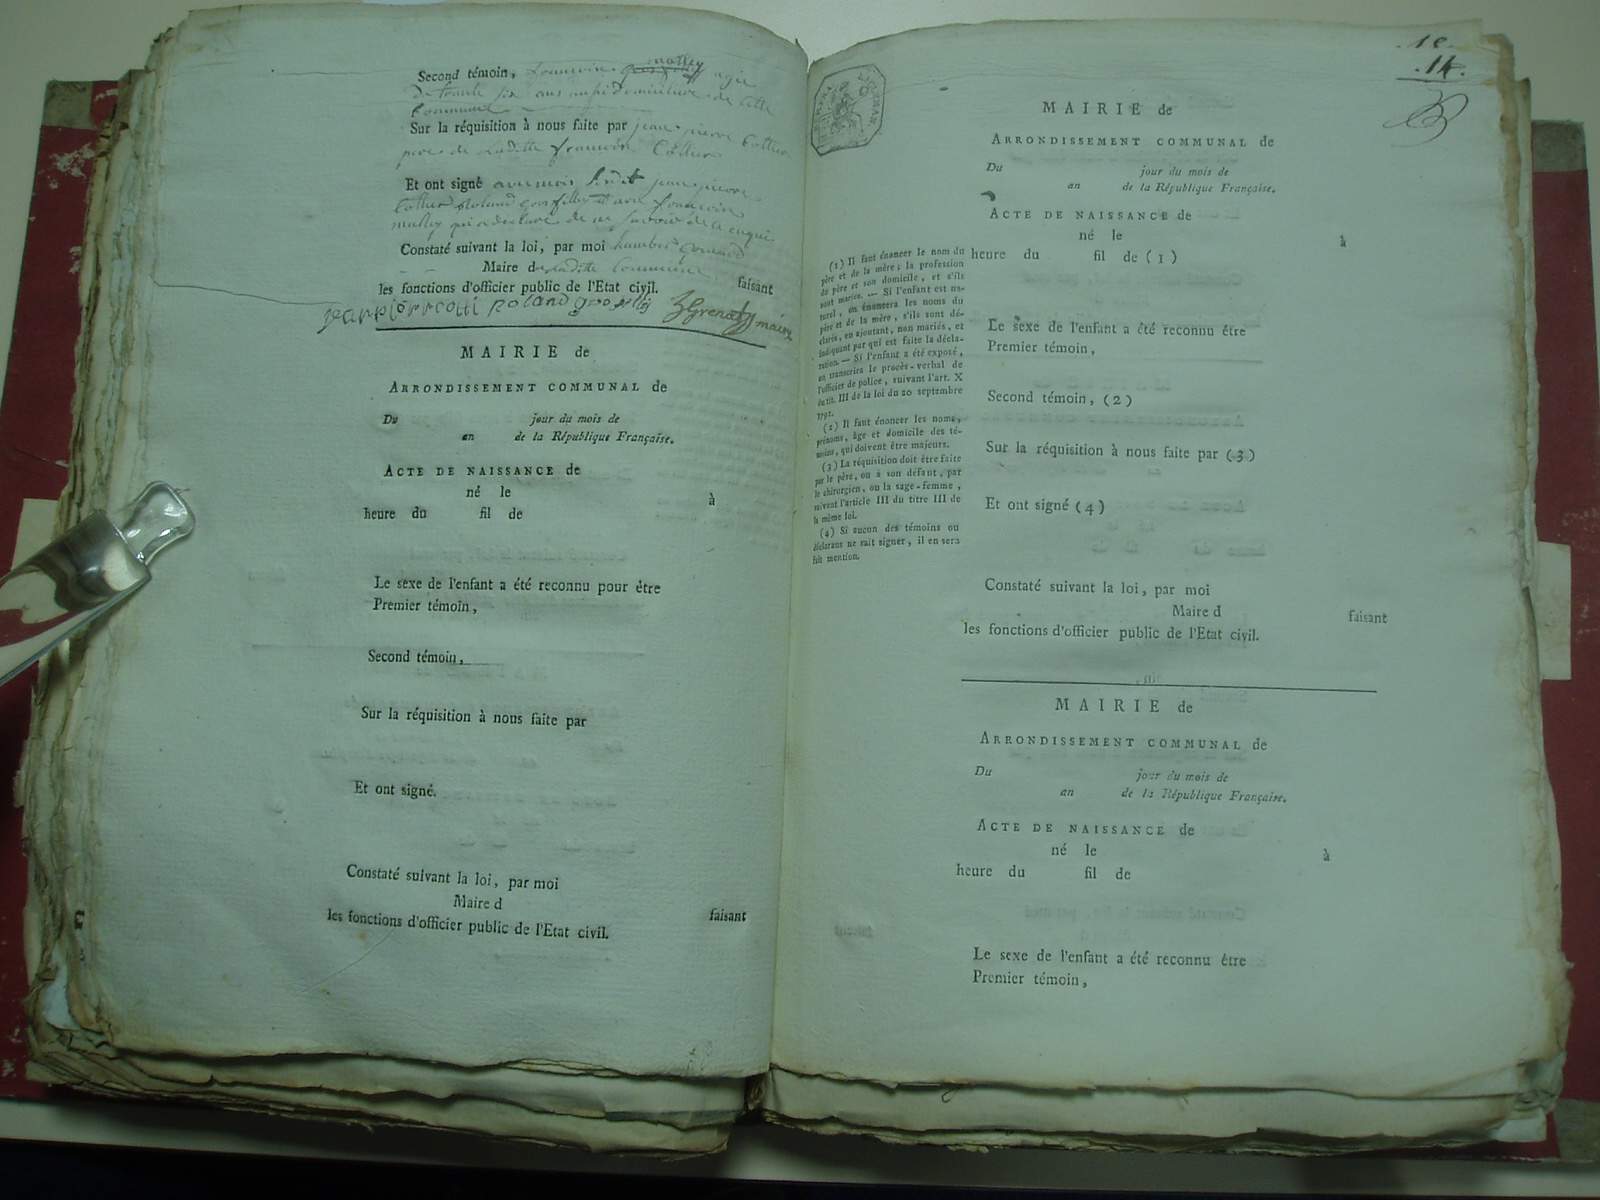 Second témoin, françois mattey agé
de trente six ans aussi domiciliare de cette
Commune
Sur la réquisition à nous faite par jean pierre Cottier
pere de Ladite françoise Cottier
Et ont signé avec moi jean pierre
Cottier Roland et non françois
mattey qui a déclaré de ne savoir de ce enquis
Constaté suivant la loi, par moi
Maire de ladite Commune faisant
les fonctions d'officier public de l'Etat civil.
jeanpierrecotti roland maire
MAIRIE de
ARRONDISSEMENT COMMUNAL de
Du jour du mois de
an de la République Française.
ACTE DE NAISSANCE de
né le à
heure du fil de
Le sexe de l'enfant a été reconnu pour être
Premier témoin,
Second témoin,
Sur la réquisition à nous faite par
Et ont signé.
Constaté suivant la loi, par moi
Maire d faisant
les fonctions d'officier public de l'Etat civil.
14.
MAIRIE de
ARRONDISSEMENT COMMUNAL de
Du jour du mois de
an de la République Française.
ACTE DE NAISSANCE de
né le à
heure du fil de (1)
Le sexe de l'enfant a été reconnu être
Premier témoin,
Second témoin, (2)
Sur la réquisition à nous faite par (3)
Et ont signé (4)
Constaté suivant la loi, par moi
Maire d faisant
les fonctions d'officier public de l'Etat civil.
(1) Il faut énoncer le nom du
père et de la mère; la profession
du père et son domicile, et s'ils
sont mariés. — Si l'enfant est na-
turel, on énoncera les noms du
père et de la mère, s'ils sont dé-
clarés, en ajoutant, non mariés, et
indiquant par qui est faite la décla-
ration. — Si l'enfant a été exposé,
on transcrira le procès-verbal de
l'officier de police, suivant l'art. X
du tit. III de la loi du 20 septembre
1792.
(2) Il faut énoncer les noms,
prénoms, âge et domicile des té-
moins, qui doivent être majeurs.
(3) La réquisition doit être faite
par le père, ou à son défaut, par
le chirurgien, ou la sage-femme,
suivant l'article III du titre III de
la même loi.
(4) Si aucun des témoins ou
déclarans ne sait signer, il en sera
fait mention.
MAIRIE de
ARRONDISSEMENT COMMUNAL de
Du jour du mois de
an de la République Française.
ACTE DE NAISSANCE de
né le à
heure du fil de
Le sexe de l'enfant a été reconnu être
Premier témoin,